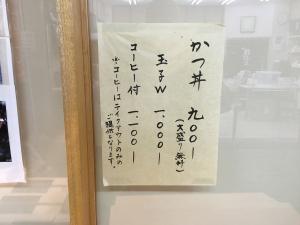 かつ丼 九〇〇ー
(大盛り無料)
玉子W 一、〇〇〇ー
コーヒー付 一、一〇〇ー
※コーヒーはテイクアウトのみの
ご提供となります。